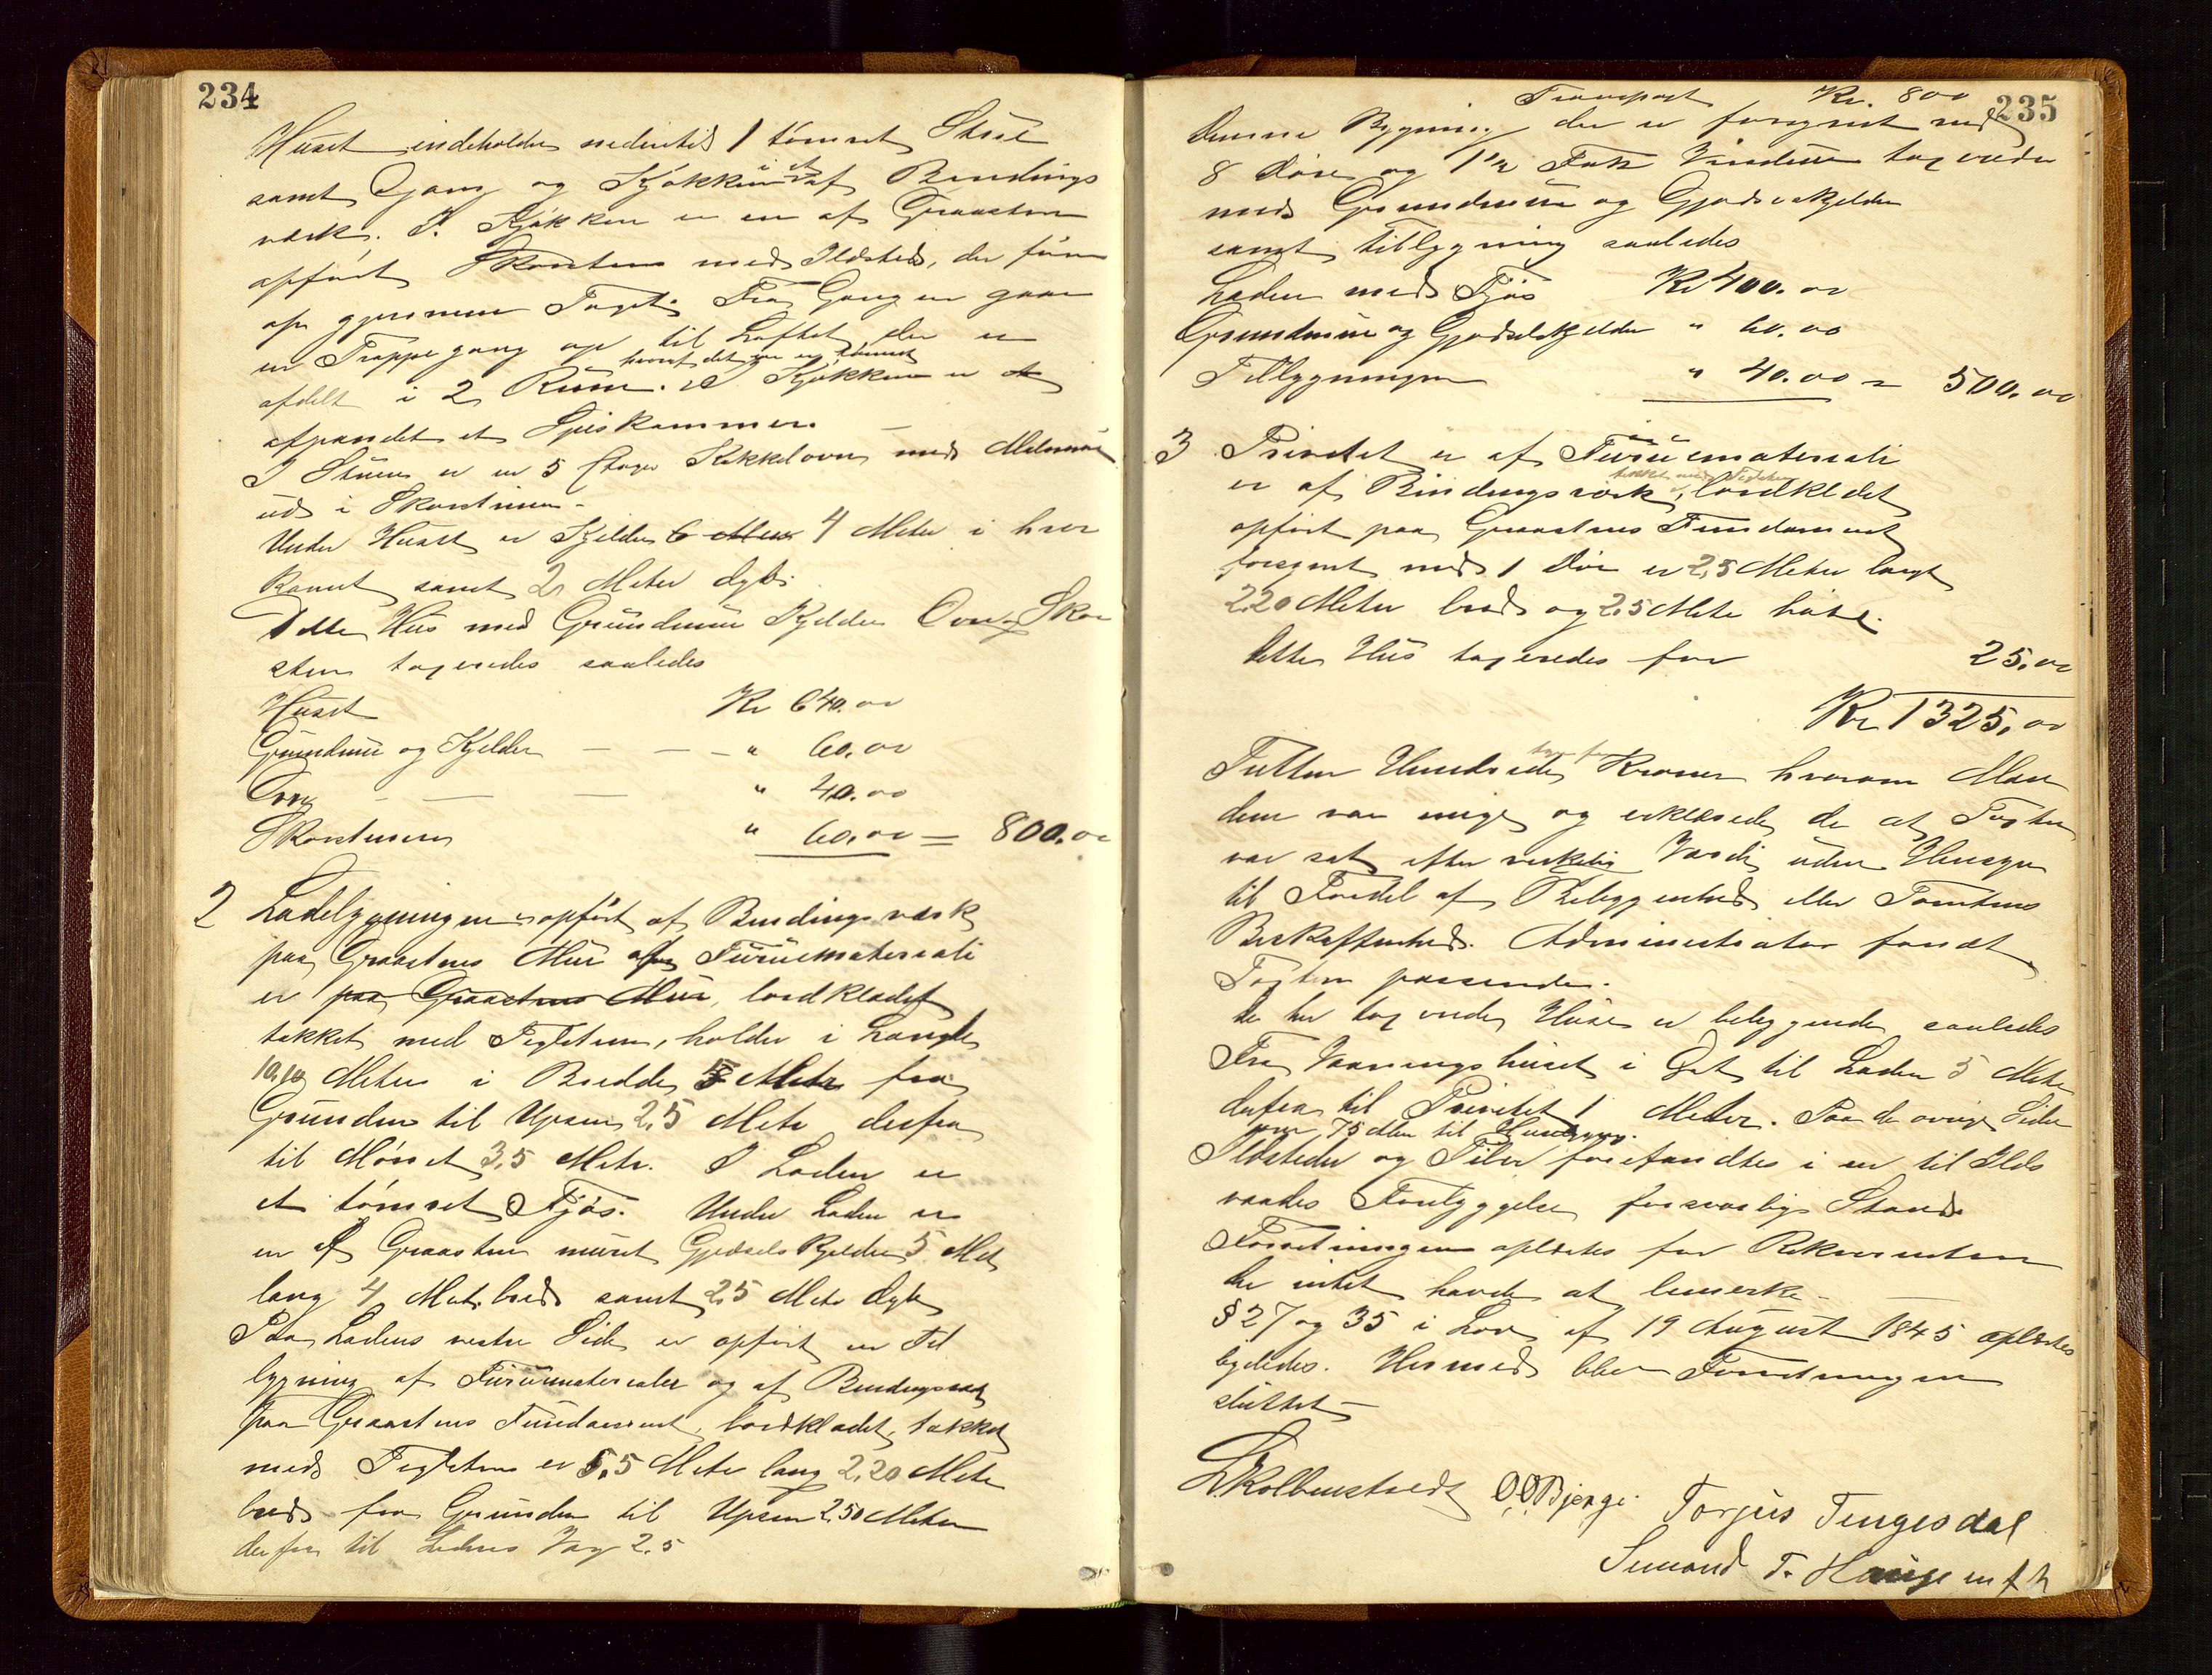 234
Huset indeholder nedentil 1 tømret Stue
samt Gang og Kjøkken af Bindings
værk. I Kjøkken er en af Graasten
opført Skorsten med Ildsted, der føres
op gjennem Taget. Fra Gangen gaar
en Trappegang op til Loftet der er
afdelt i 2 Rum. Kjøkken er
afpandet et Spiskammer.
I Stuen er en 5 Etages Kakkelovn med
ud i Skorstenen.
Under Huset er Kjelder 6 Meter 4 Meter i hver
Kant samt 2 Meter dyb.
Dette Hus med Grundmur Kjelder Ovn Skor
sten taxeredes saaledes
Huset Kr 640.00
Grundmur og Kjelder — — — " 60.00
Ovn — — — " 40.00
Skorstenen " 60.00 = 800.00
2 Ladebygningen er opført af Bindingsværk
paa Graastens Mur af Furuemateriale
er paa Graastens Mur, bordklædt
tækket med Teglsten, holder i Længde
10,10 Meter i Bredde 5 Meter fra
Grunden til Upsen 2,5 Meter derfra
til Mønet 3,5 Meter. I Laden er
et tømret Fjøs. Under Laden er
en af Graasten muret Gjødselskjelder 5 Met
lang 4 Met. bred samt 2,5 Meter dyb
Paa Ladens vestre Side er opført en Til
bygning af Furuematerialer og af Bindingsværk
paa Graastens Fundament, bordklædt, tækket
med Teglsten er 5,5 Meter lang 2,20 Meter
bred fra Grunden til Upsen 2,50 Meter
derfra til Ladens Væg 2,5
235
Transport Kr. 800
Denne Bygning der er forsynet med
8 Døre og 1 1/2 Fak Vinduer taxeredes
med Grundmur og Gjødselskjelder
samt tilbygning saaledes
Laden med Fjøs Kr 400.00
Grundmur og Gjødselskjelder " 60.00
Tilbygningen " 40.00 = 500.00
3 Privetet er af Furuemateriale
tækket med Teglsten
er af Bindingsværk, bordklædt
opført paa Graastens Fundament
forsynet med 1 Dør er 2,5 Meter langt
2,20 Meter bred og 2,5 Meter høit.
Dette Hus taxeredes for 25.00
Kr 1325.00
Tretten Hundrede tyve fem Kroner hvorom Mæn
dene var enige og erklærede de at Taxten
var sat efter virkelig Værdi uden Hensyn
til Fordel af Beliggenhed eller Tomtens
Beskaffenhed. Administrator fandt
Taxten passende.
De her taxerede Huse er beliggende saaledes
Fra Vaaningshuset i Øst til Laden 5 Meter
derfra til Privetet 1 Meter. Paa de øvrige Sider
over 75 Mtr til Husene.
Ildsteder og Piber forefandtes i en til Ilds
vaades Forebyggelse forsvarlig Stand.
Forretningen oplæstes for Rekvirenten
der intet havde at bemerke.
§ 27 og 35 i Lov af 19 August 1845 oplæstes
ligeledes. Hermed blev Forretningen
sluttet —
O.O Bjerge. Torjus Tengesdal
T. Hauge m f P